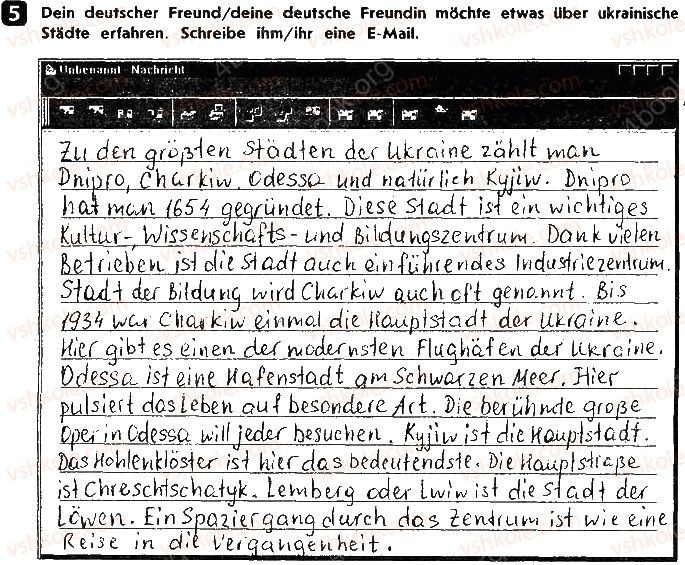 5 Dein deutscher Freund/deine deutsche Freundin möchte etwas über ukrainische
Städte erfahren. Schreibe ihm/ihr eine E-Mail.
Unbenannt - Nachricht
Zu den größten Städten der Ukraine zählt man
Dnipro, Charkiw, Odessa und natürlich Kyjiw. Dnipro
hat man 1654 gegründet. Diese Stadt ist ein wichtiges
Kultur-, Wissenschafts- und Bildungszentrum. Dank vielen
Betrieben ist die Stadt auch ein führendes Industriezentrum.
Stadt der Bildung wird Charkiw auch oft genannt. Bis
1934 war Charkiw einmal die Hauptstadt der Ukraine.
Hier gibt es einen der modernsten Flughäfen der Ukraine.
Odessa ist eine Hafenstadt am Schwarzen Meer. Hier
pulsiert das Leben auf besondere Art. Die berühnde große
Oper in Odessa will jeder besuchen. Kyjiw ist die Hauptstadt.
Das Hohlenklöster ist hier das bedeutendste. Die Hauptstraße
ist Chreschtschatyk. Lemberg oder Lwiw ist die Stadt der
Löwen. Ein Spaziergang durch das Zentrum ist wie eine
Reise in die Vergangenheit.